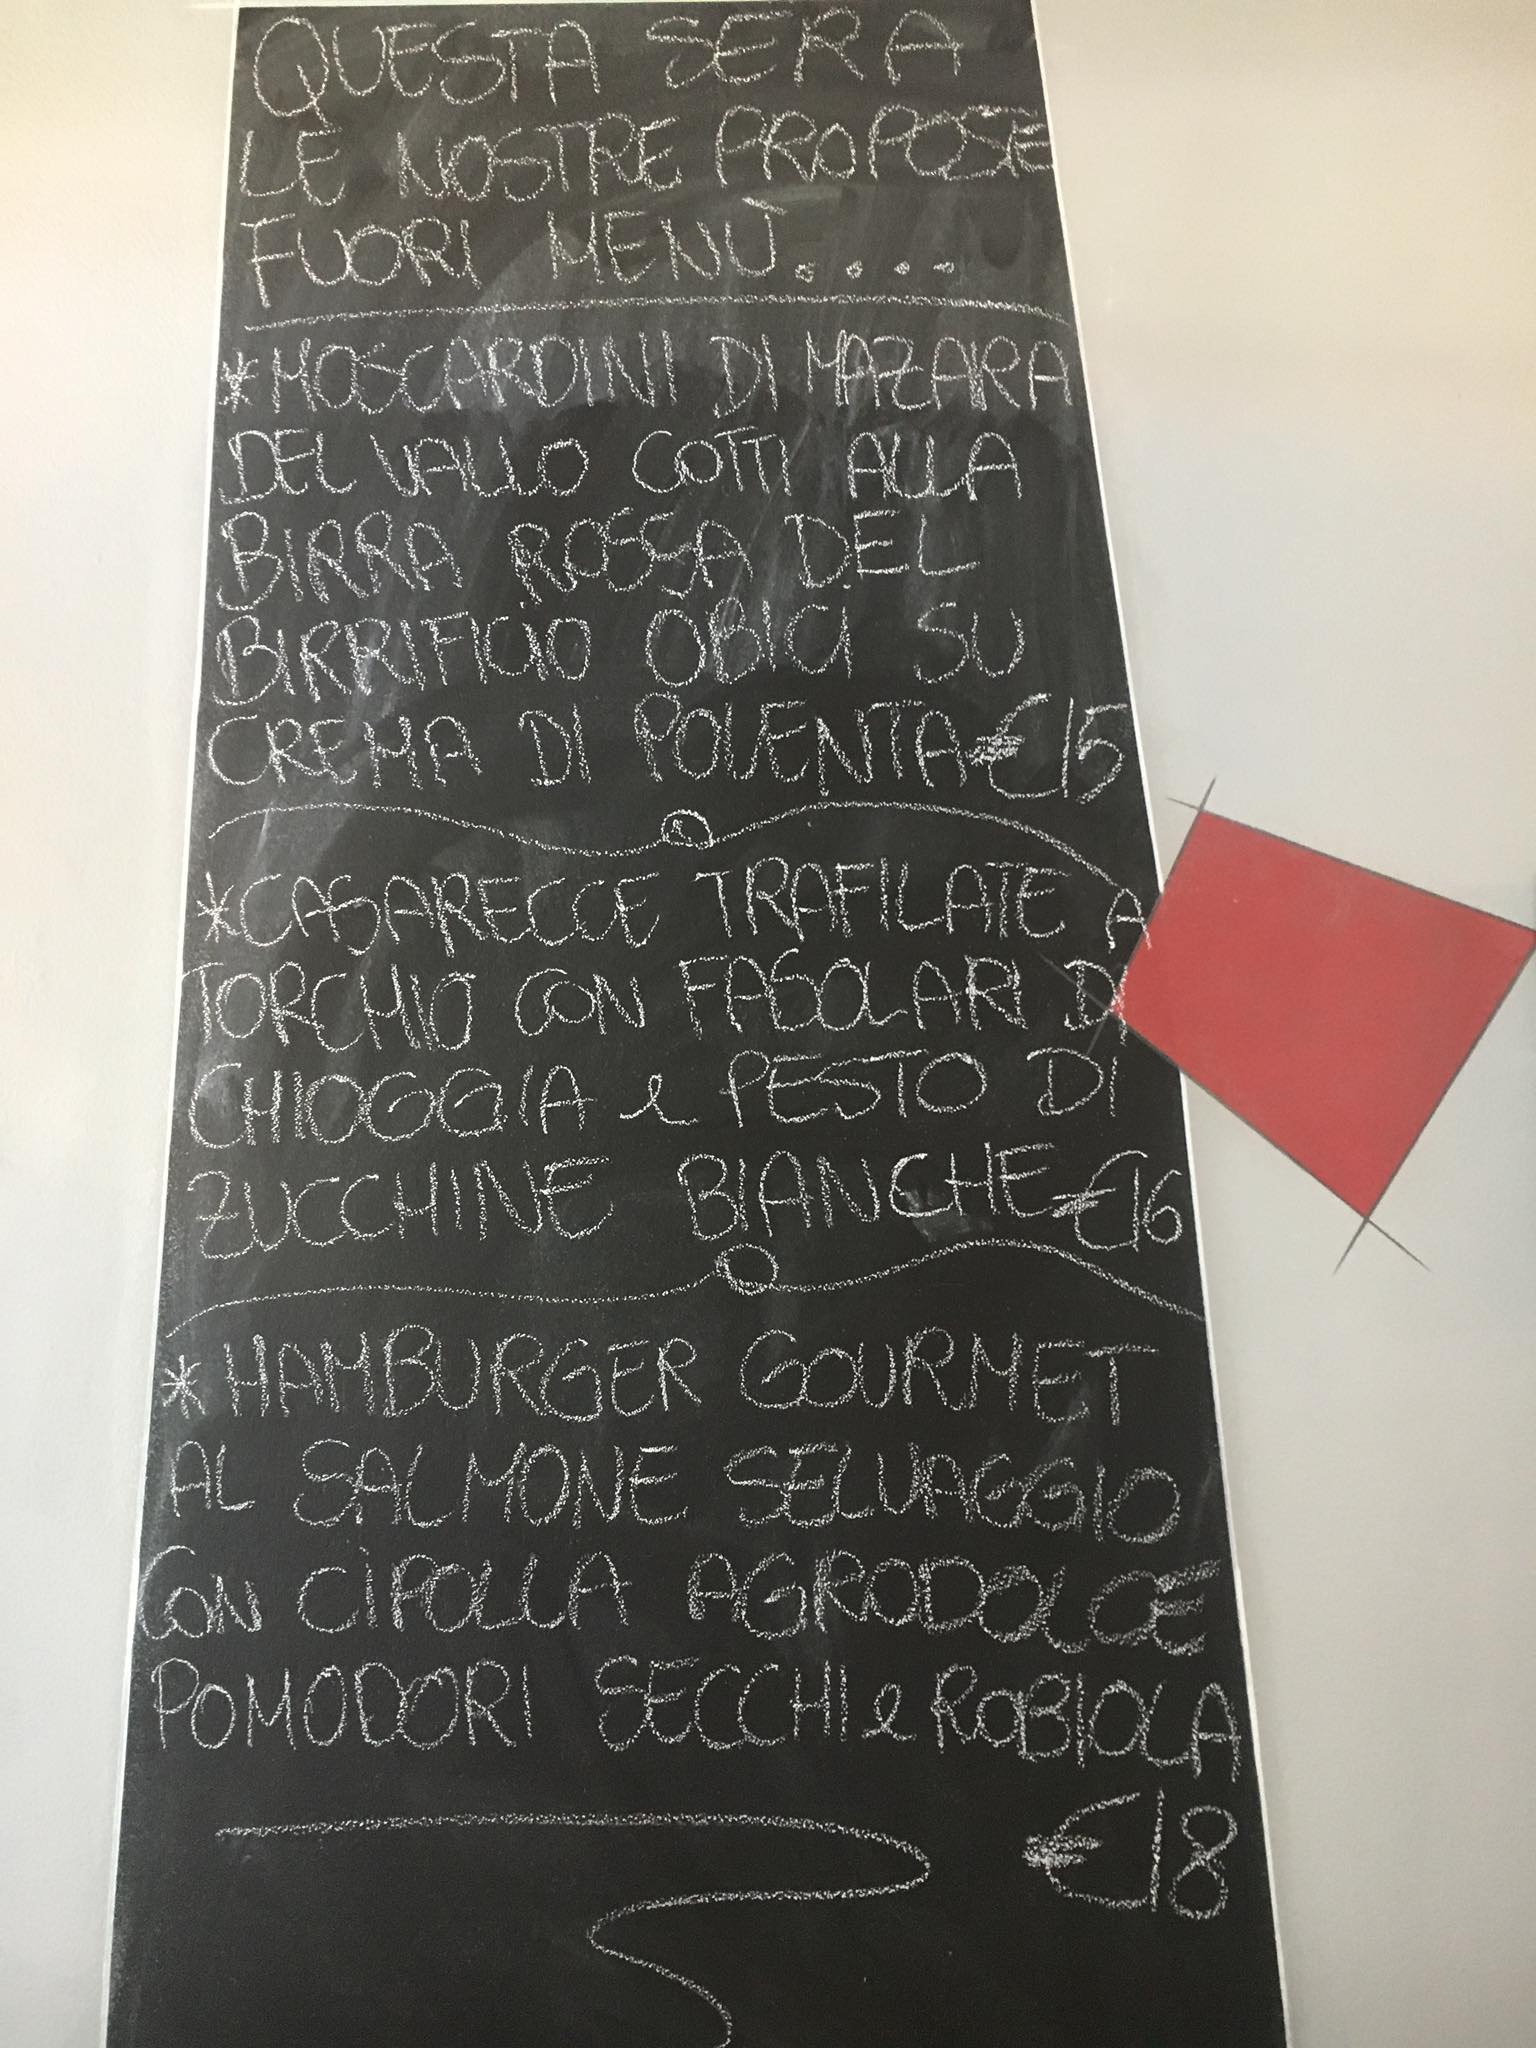 QUESTA SERA
LE NOSTRE PROPOSTE
FUORI MENÙ....
*MOSCARDINI DI MAZARA
DEL VALLO COTTI ALLA
BIRRA ROSSA DEL
BIRRIFICIO OBICI SU
CREMA DI POLENTA €15
*CASARECCE TRAFILATE A
TORCHIO CON FASOLARI DI
CHIOGGIA e PESTO DI
ZUCCHINE BIANCHE €16
*HAMBURGER GOURMET
AL SALMONE SELVAGGIO
CON CIPOLLA AGRODOLCE
POMODORI SECCHI e ROBIOLA
€18